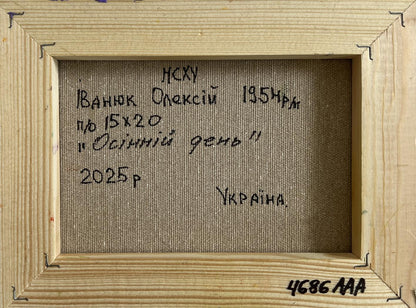 НСХУ
Іванюк Олексій 1954р/м
п/о 15x20
"Осінній день"
2025р
Україна.
4686ΛΛΛ